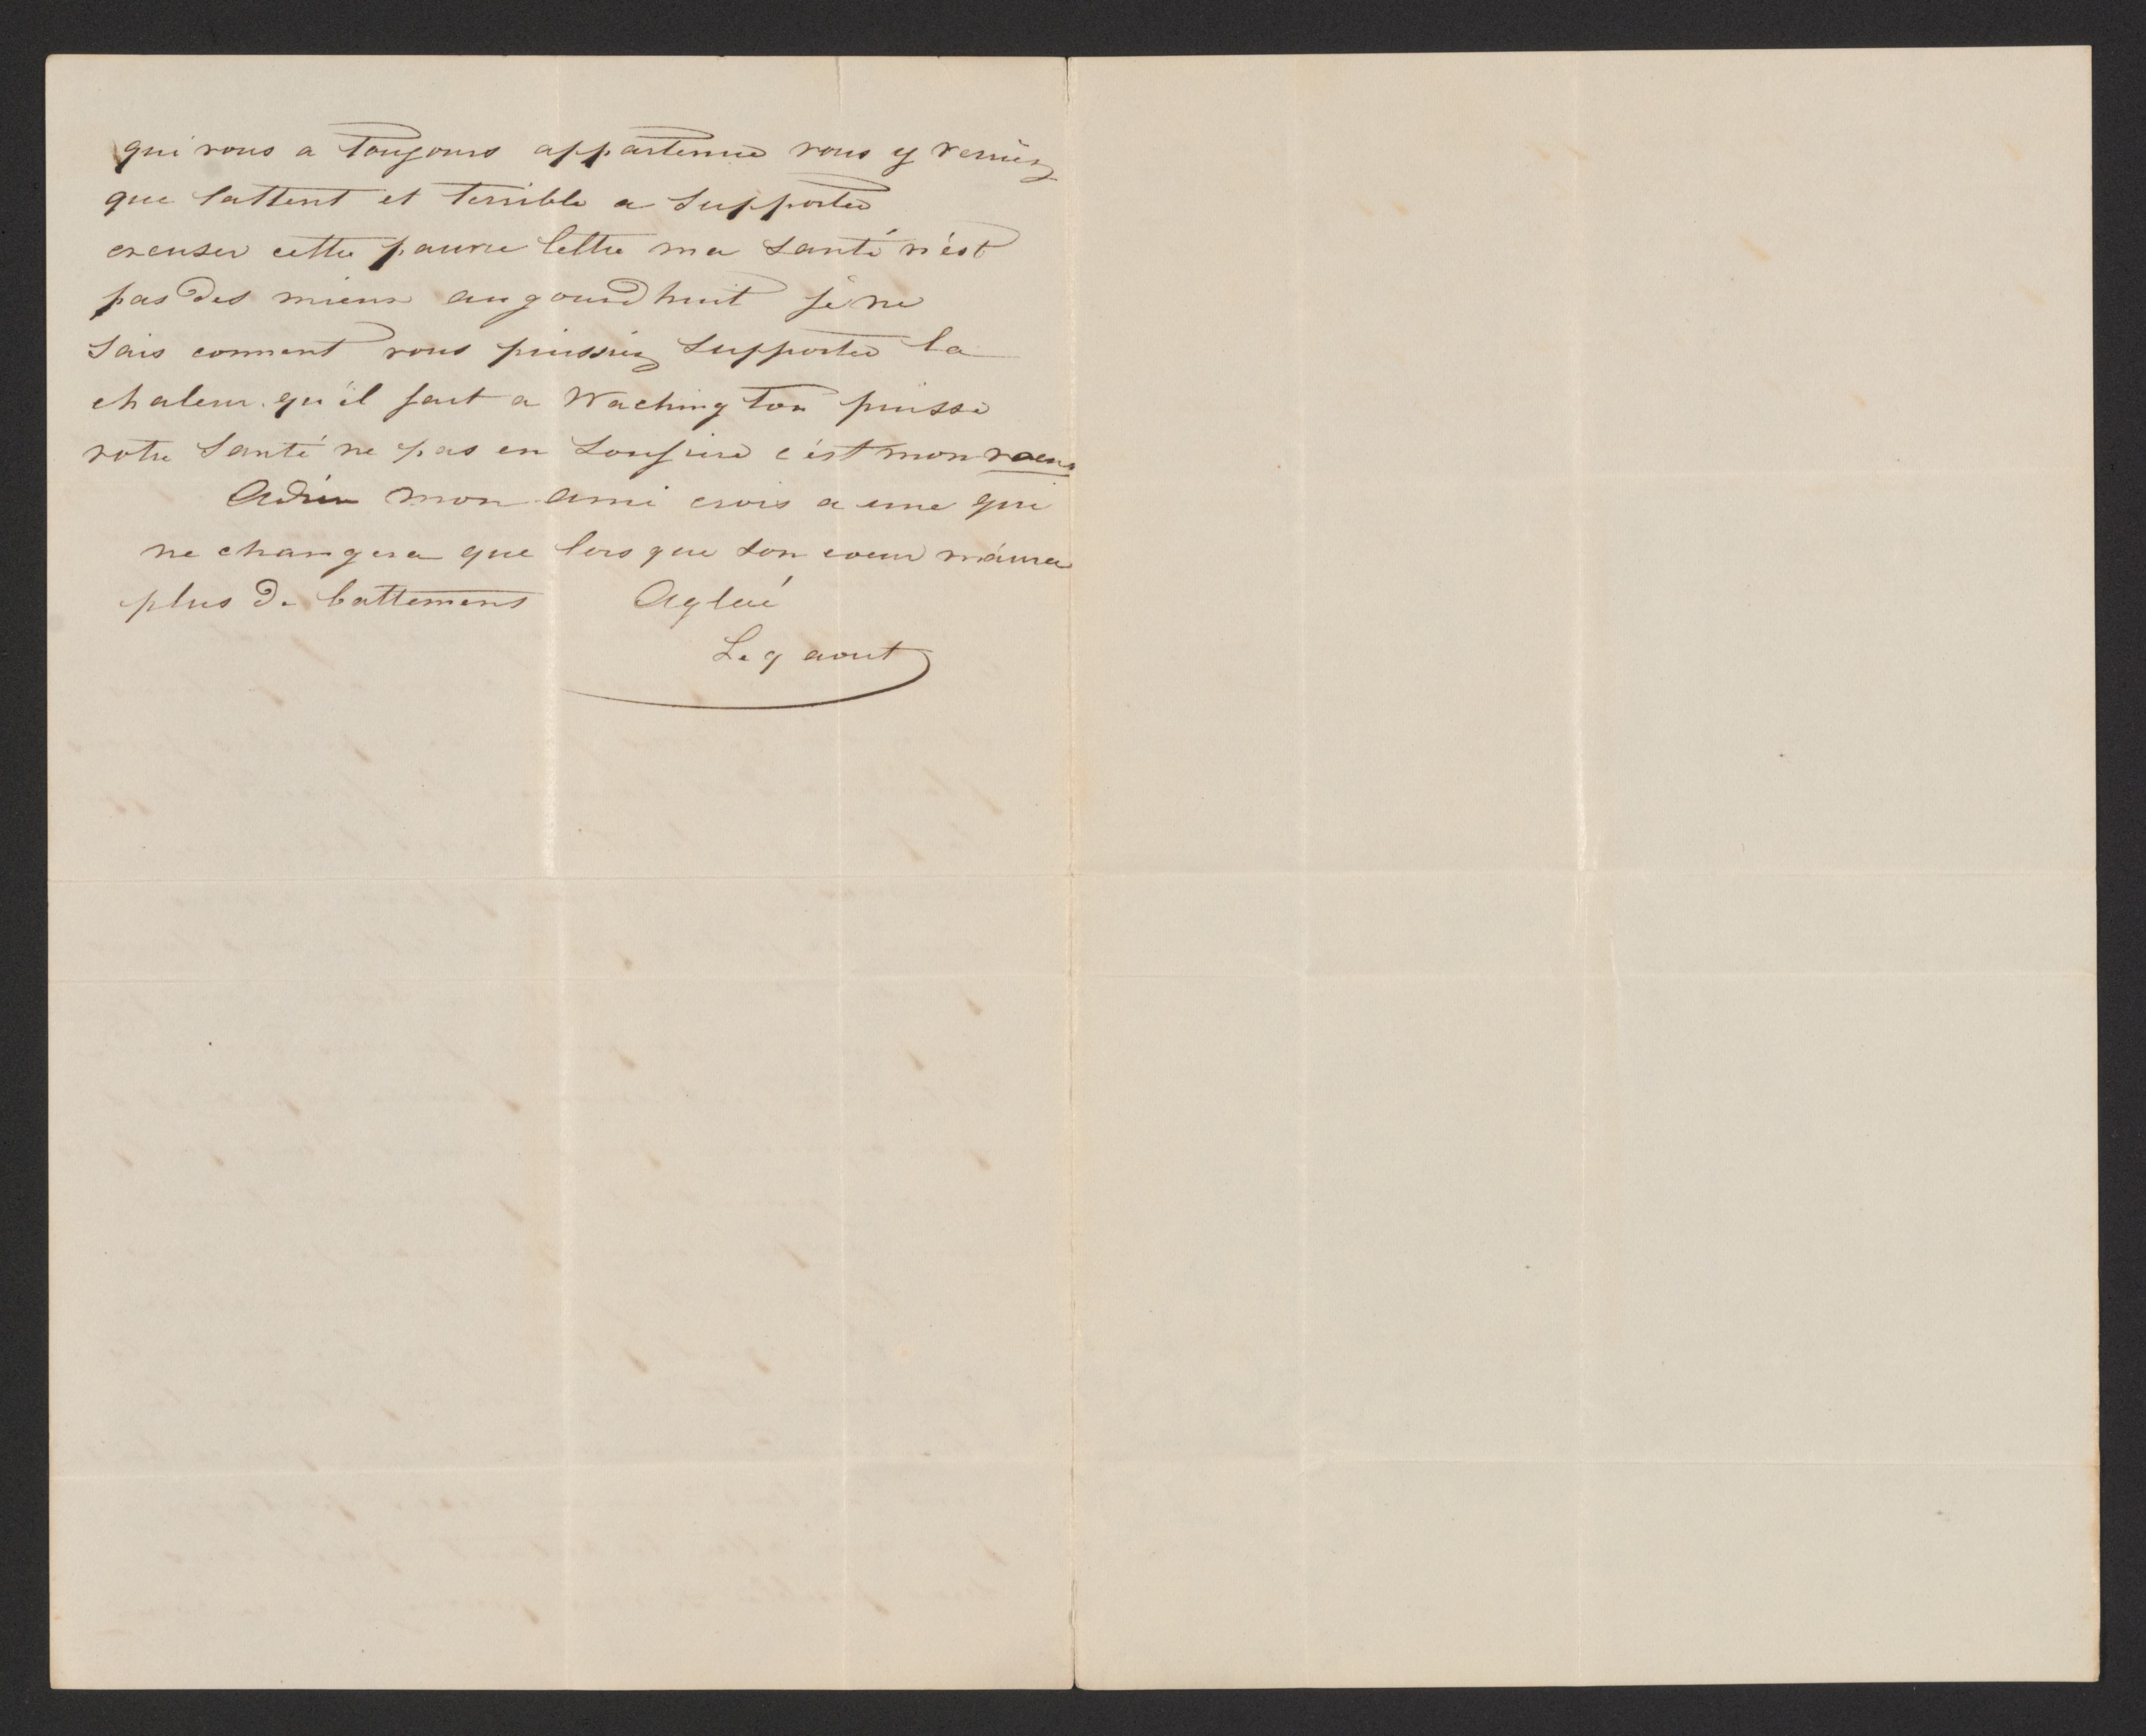 qui vous a toujours appartenue vous y verriez
que lattent et terrible a supporter
excuser cette pauvre lettre ma santé n'est
pas des mieux aujourdhuit je ne
sais comment vous puissiez supporter la
chaleur qu'il fait a Wachington puisse
votre santé ne pas en soufrire c'est mon voeux
Adieu mon ami crois a une qui
ne changera que lors que son coeur n'aura
plus de battemens Aglaé
Le 9 aout